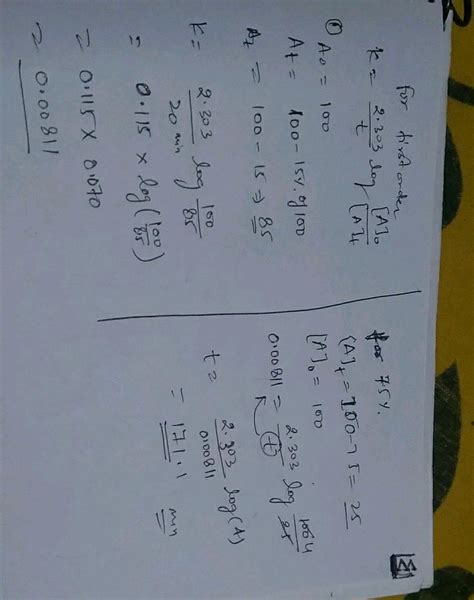 for first order
k = 2.303/t log [A]₀/[A]t
① A₀ = 100
At = 100 - 15% of 100
At = 100 - 15 ⇒ 85
k = 2.303/20 min log 100/85
= 0.115 × log(100/85)
= 0.115 × 0.070
= 0.00811
for 75%.
[A]t = 100 - 75 = 25
[A]₀ = 100
0.00811 = 2.303/t log 100 4/25
t = 2.303/0.00811 log(4)
= 171.1 min